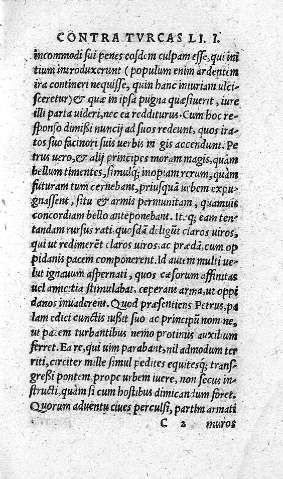 CONTRA TVRCAS LI. I.
incommodi sui penes eosdem culpam esse, qui ini
tium introduxerunt (populum enim ardentem
ira contineri nequisse, quin hanc iniuriam ulci-
sceretur) & quæ in ipsa pugna quæsiuerit, iure
illi parta uideri, nec ea redditurus. Cum hoc re-
sponso dimissi nuncij ad suos redeunt, quos ira-
tos suo facinori suis uerbis magis accendunt. Pe
trus uero, & alij principes moram magis, quàm
bellum timentes, simulq; inopiam rerum, quàm
futuram tum cernebant, priusquã urbem expu-
gnassent, situ & armis permunitam, quamuis
concordiam bello anteponebant. Itaq; eam ten-
tandam rursus rati quosdã deligũt claros uiros,
qui ut redimerẽt claros uiros, ac prædã, cum op
pidanis pacem componerent. Id autem multi ue-
lut ignauum aspernati, quos cæsorum affinitas
uel amicitia stimulabat, ceperant arma, ut oppi
danos inuaderent. Quod præsentiens Petrus, pa
lam edicit cunctis iussit suo ac principũ nomine,
ut pacem turbantibus nemo protinus auxilium
ferret. Ea re, qui uim parabant, nil admodum ter
riti, circiter mille simul pedites equitesq; trans-
greßi pontem prope urbem iuere, non secus in-
structi, quàm si cum hostibus dimicandum foret.
Quorum aduentu ciues perculsi, partim armati
C 2 muros